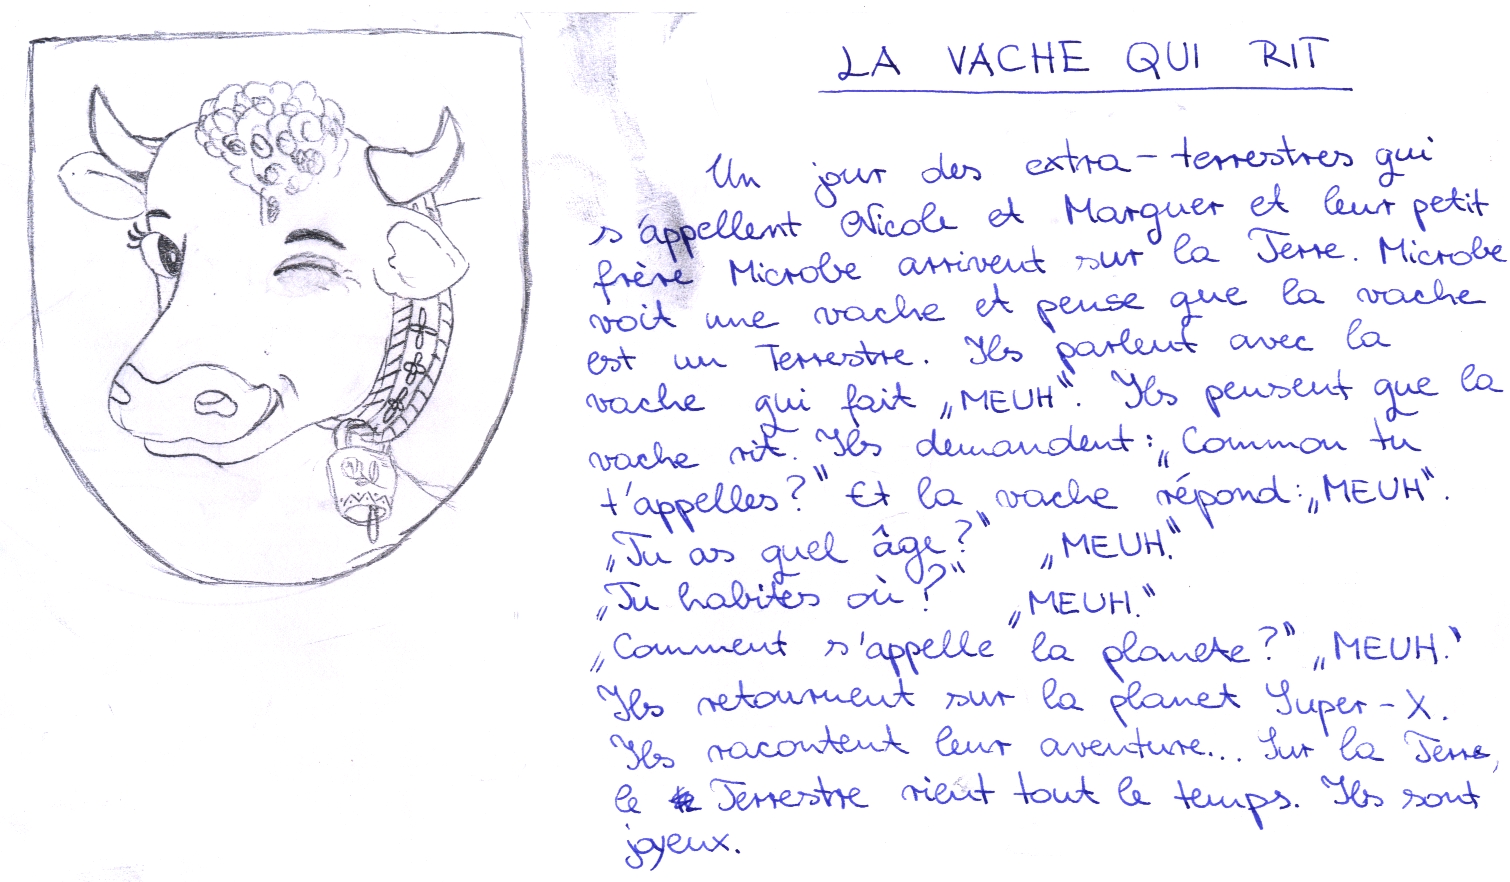 LA VACHE QUI RIT
Un jour des extra-terrestres qui
s'appellent Nicole et Marguer et leur petit
frère Microbe arrivent sur la Terre. Microbe
voit une vache et pense que la vache
est un Terrestre. Ils parlent avec la
vache qui fait „MEUH“. Ils pensent que la
vache rit. Ils demandent: „Common tu
t'appelles?“ Et la vache répond: „MEUH“.
„Tu as quel âge?“ „MEUH.“
„Tu habites où?“ „MEUH.“
„Comment s'appelle la planete?“ „MEUH.“
Ils retournent sur la planet Super-X.
Ils racontent leur aventure... Sur la Terre,
le Terrestre rient tout le temps. Ils sont
joyeux.